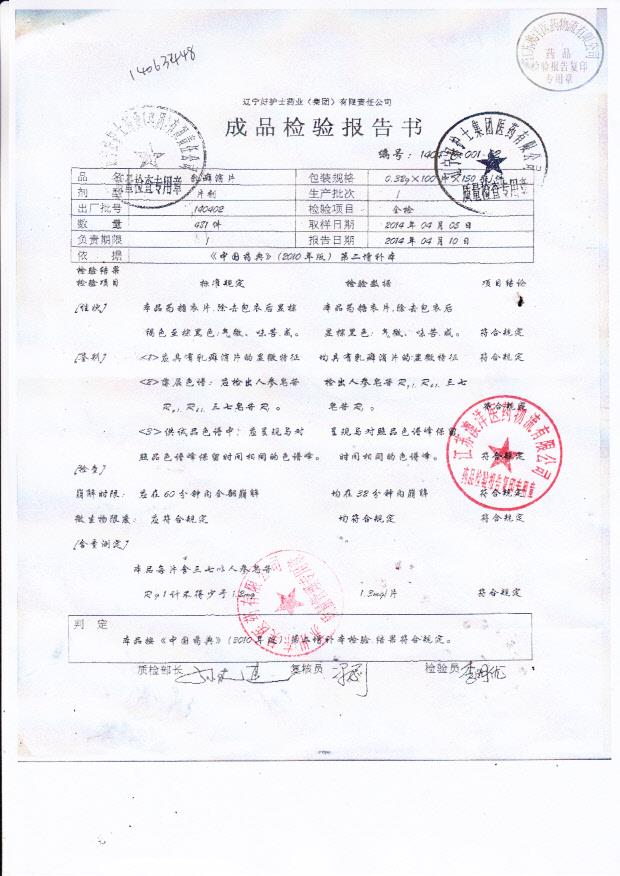 14063448
江苏澳洋医药物流有限公司
药品
检验报告复印
专用章
辽宁好护士药业（集团）有限责任公司
成品检验报告书
编号：
质量检查专用章
质量检查专用章
品 名 乳癖消片 包装规格 0.32g×100片×150瓶/件
剂 型 片剂 生产批次 /
出厂批号 140402 检验项目 全检
数 量 651件 取样日期 2014年04月05日
负责期限 / 报告日期 2014年04月10日
依 据 《中国药典》（2010年版）第二增补本
检验结果
检验项目 标准规定 检验数据 项目结论
[性状] 本品为糖衣片，除去包衣后显棕 本品为糖衣片，除去包衣后
褐色至棕黑色；气微、味苦、咸。 显棕黑色；气微、味苦、咸。 符合规定
[鉴别] <1>应具有乳癖消片的显微特征 均具有乳癖消片的显微特征 符合规定
<2>薄层色谱：应检出人参皂苷 检出人参皂苷Rg1、Rb1、三七
Rg1、Rb1、三七皂苷R1。 皂苷R1。 符合规定
<3>供试品色谱中：应呈现与对 呈现与对照品色谱峰保留 
照品色谱峰保留时间相同的色谱峰。 时间相同的色谱峰。 符合规定
江苏澳洋医药物流有限公司
药品检验报告复印专用章
[检查]
崩解时限： 应在60分钟内全部崩解 均在38分钟内崩解 符合规定
微生物限度： 应符合规定 均符合规定 符合规定
[含量测定]
本品每片含三七以人参皂苷
Rg1计不得少于1.2mg 1.3mg/片 符合规定
判 定
本品按《中国药典》（2010年版）第二增补本检验 结果符合规定。
质检部长 复核员 检验员